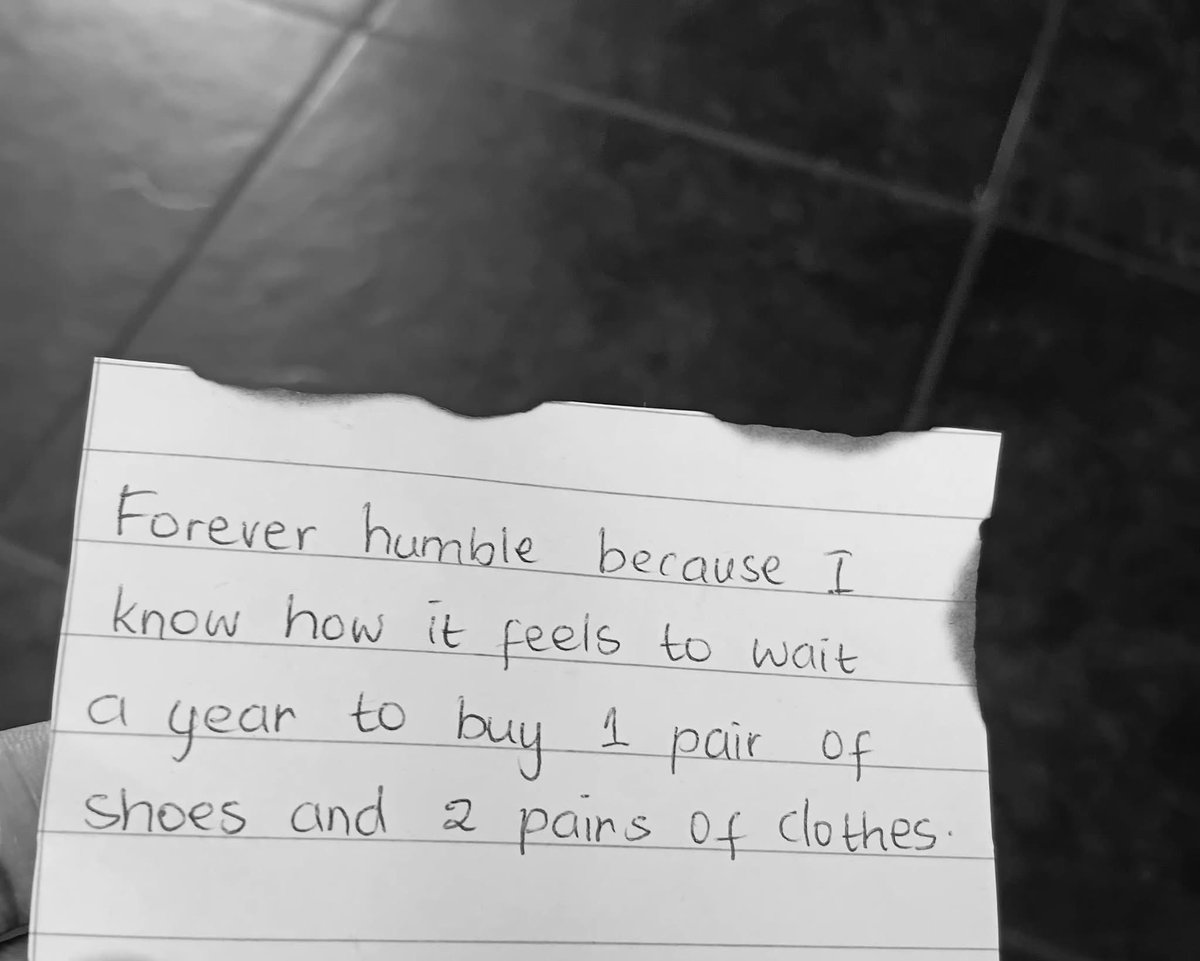 Forever humble because I
know how it feels to wait
a year to buy 1 pair of
shoes and 2 pairs of clothes.